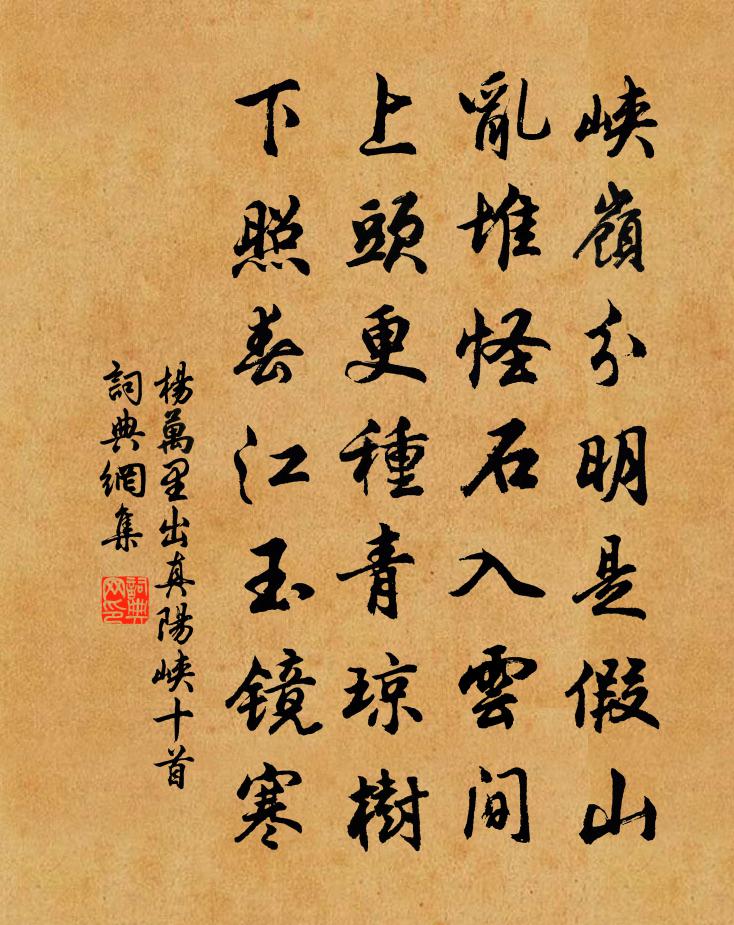 峽嶺分明是假山
亂堆怪石入雲間
上頭更種青琼樹
下照春江玉镜寒
楊萬里出真陽峽十首
詞典網集
詞典網印